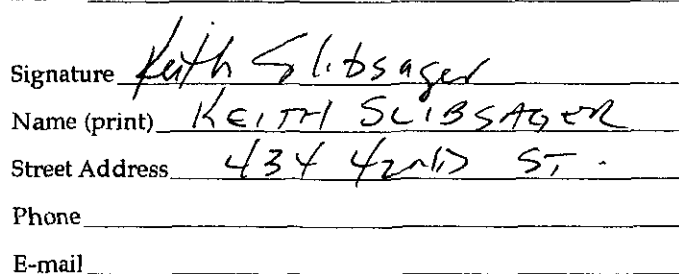 Signature Keith Slibsager
Name (print) KEITH SLIBSAGER
Street Address 434 42ND ST.
Phone
E-mail